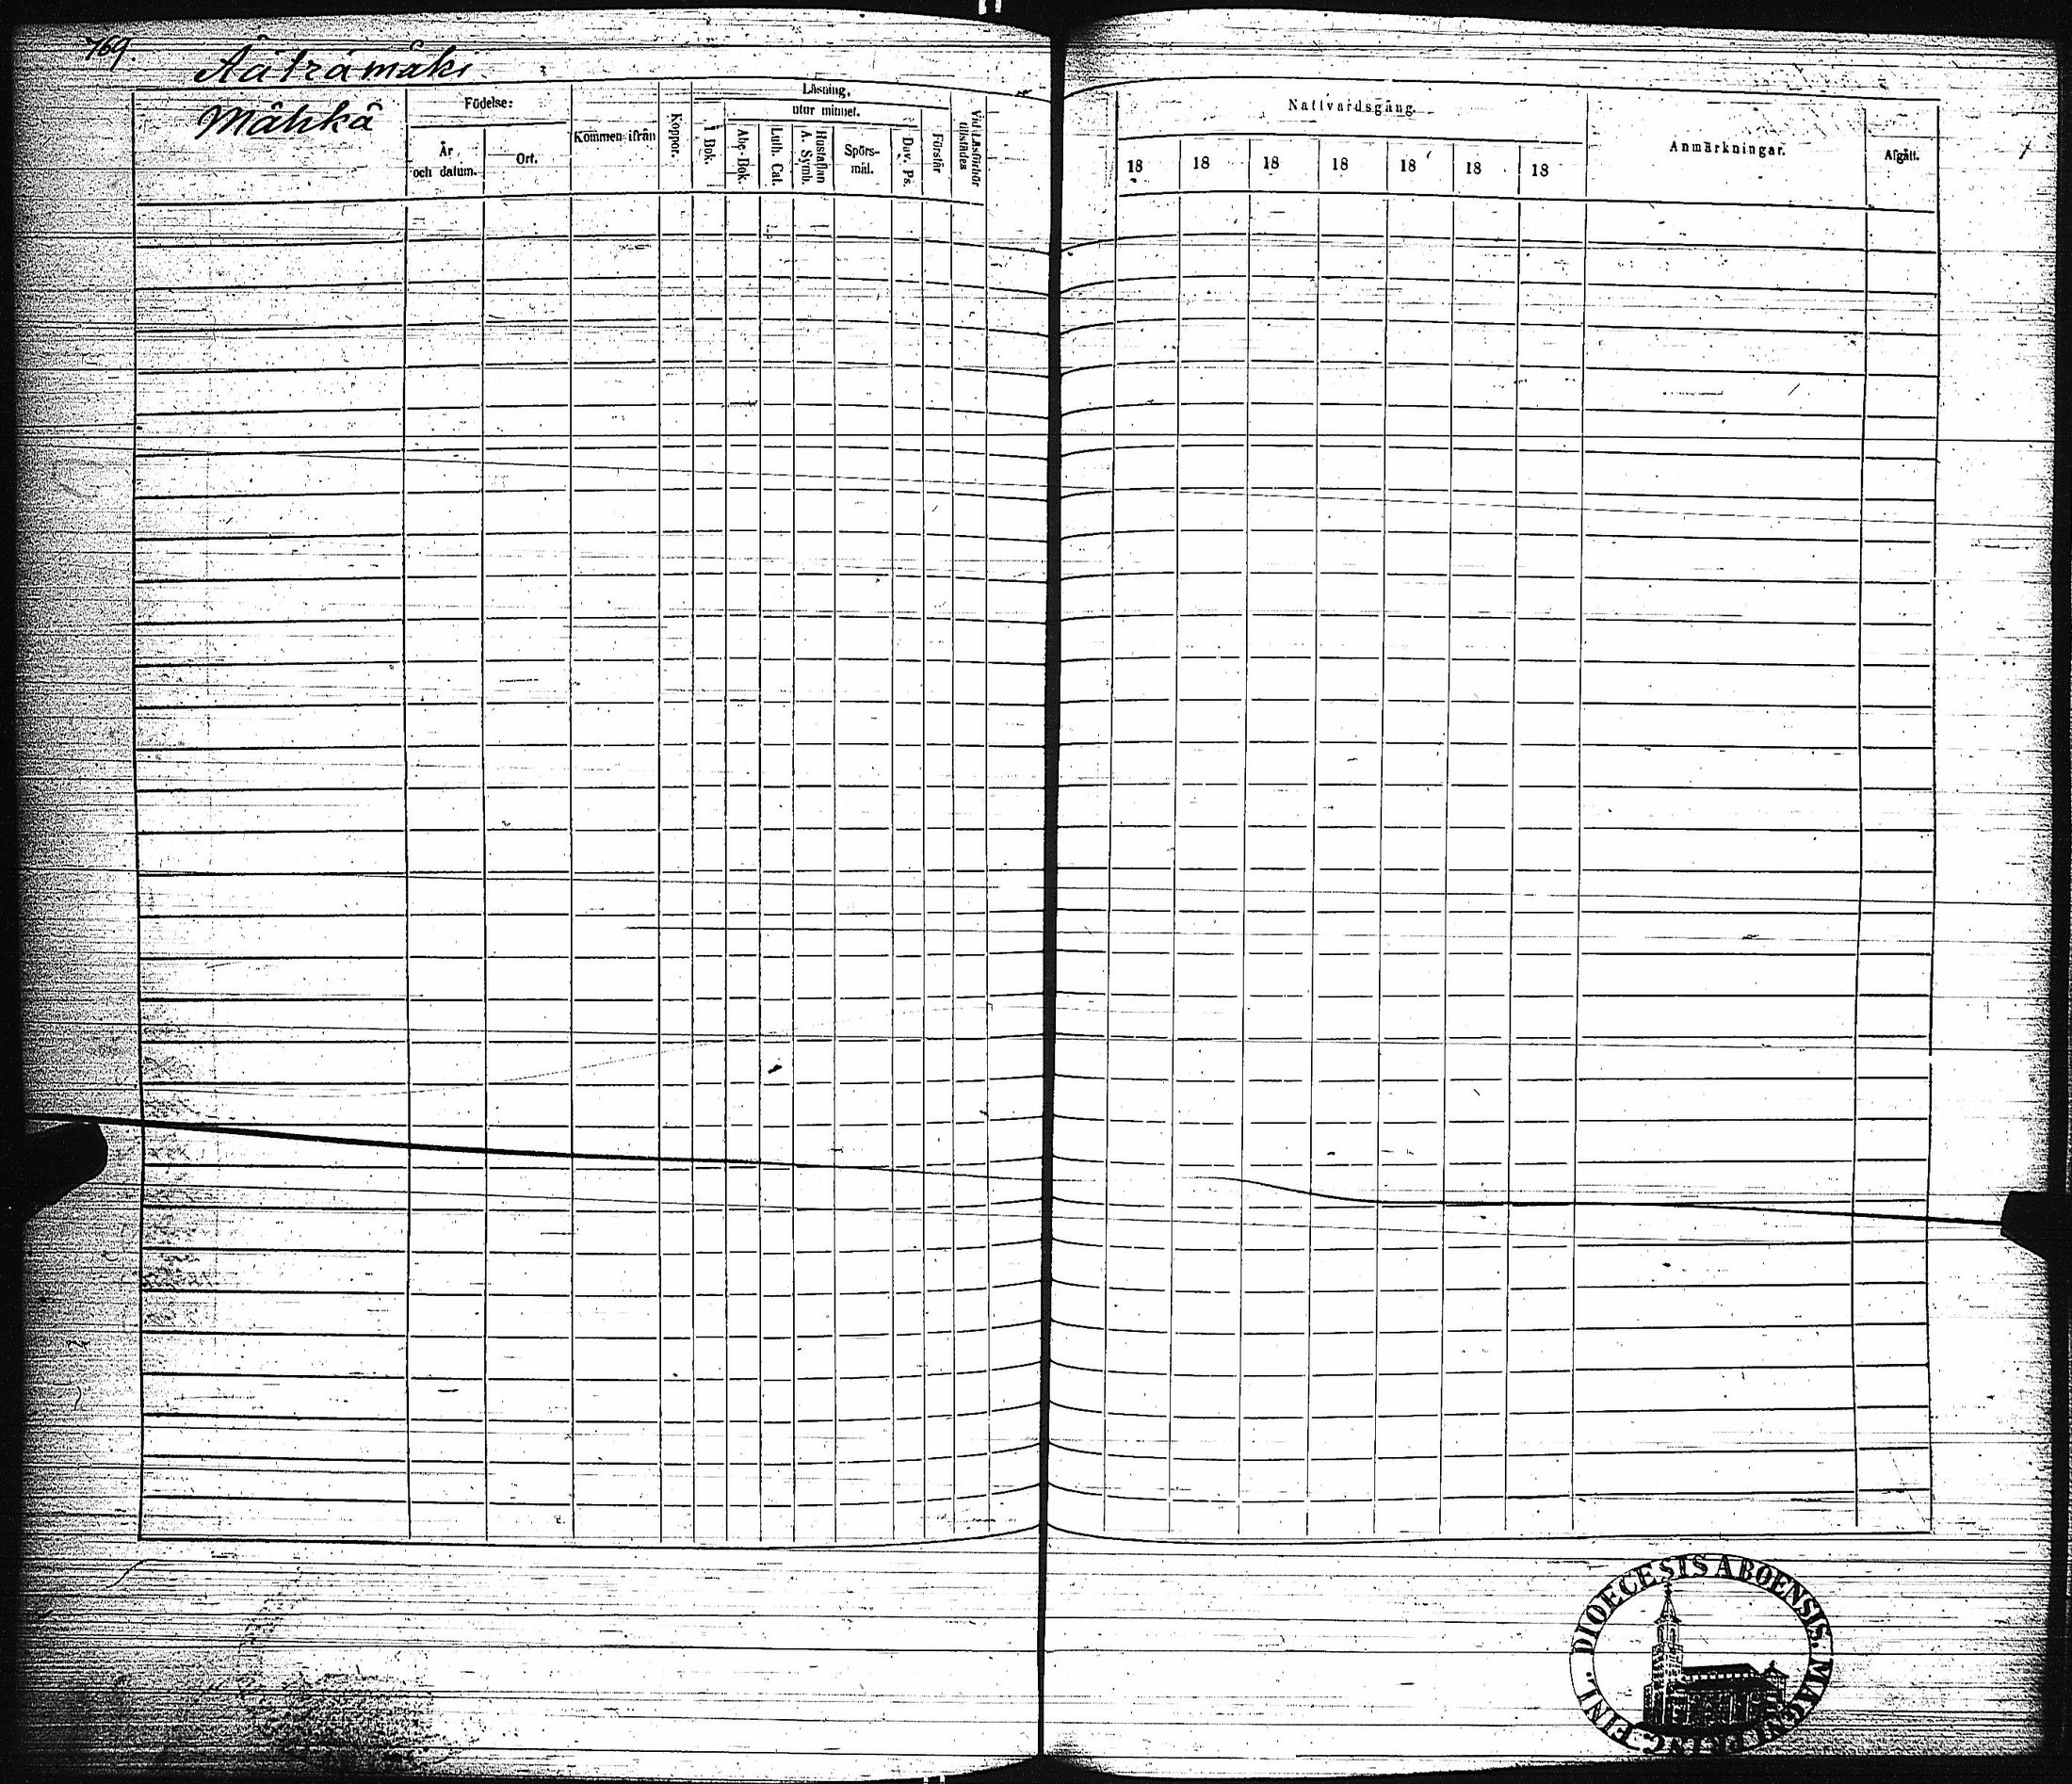 769.
Ääträmäki
Mähkä
Födelse:
År och datum.
Ort.
Kommen ifrån
Koppor.
Läsning,
utur minnet.
I Bok.
Abc-Bok.
Luth. Cat.
Hustaflan A. Symb.
Spörs-mål.
Dav. Ps.
Förstår
Vid Läsförhör tillstädes
Nattvardsgång.
18 18 18 18 18 18 18
Anmärkningar.
Afgått.
DIOECESIS ABOENSIS. MAGNI PRINC. FINL.